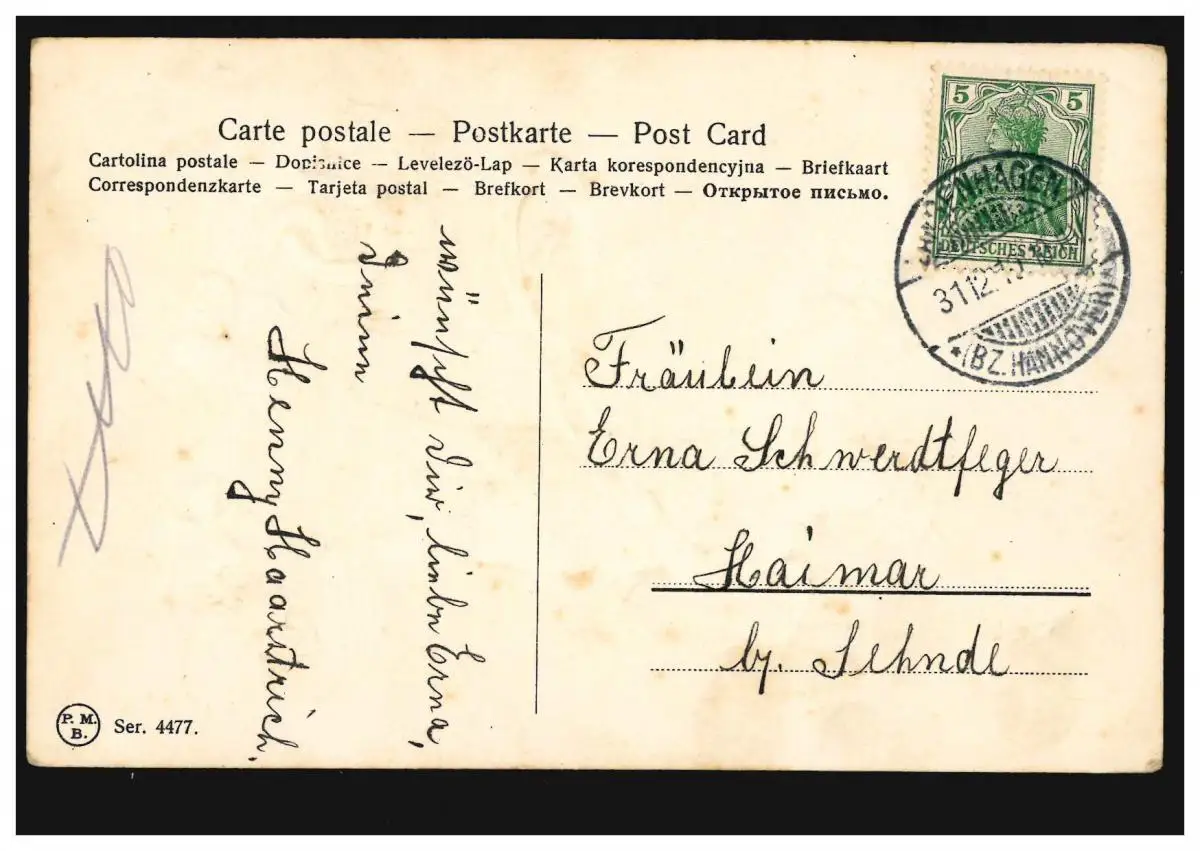 Carte postale — Postkarte — Post Card
Cartolina postale — Dopisnice — Levelezö-Lap — Karta korespondencyjna — Briefkaart
Correspondenzkarte — Tarjeta postal — Brefkort — Brevkort — Открытое письмо.
5 5
DEUTSCHES REICH
31.12.
*(BZ. HANNOVER)
wünscht dir, liebe Erna,
deine
Henny Haarstrich.
Fräulein
Erna Schwerdtfeger
Haimar
by. Sehnde
P. M.
B.
Ser. 4477.